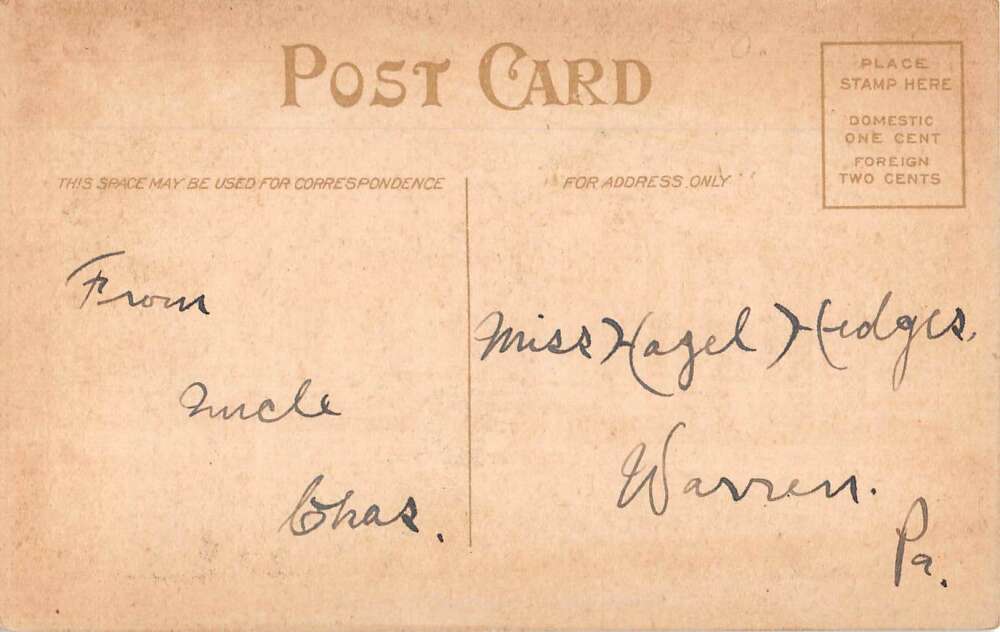 POST CARD
PLACE
STAMP HERE
DOMESTIC
ONE CENT
FOREIGN
TWO CENTS
THIS SPACE MAY BE USED FOR CORRESPONDENCE
FOR ADDRESS ONLY
From
Uncle
Chas.
Miss Hazel Hedges,
Warren.
Pa.